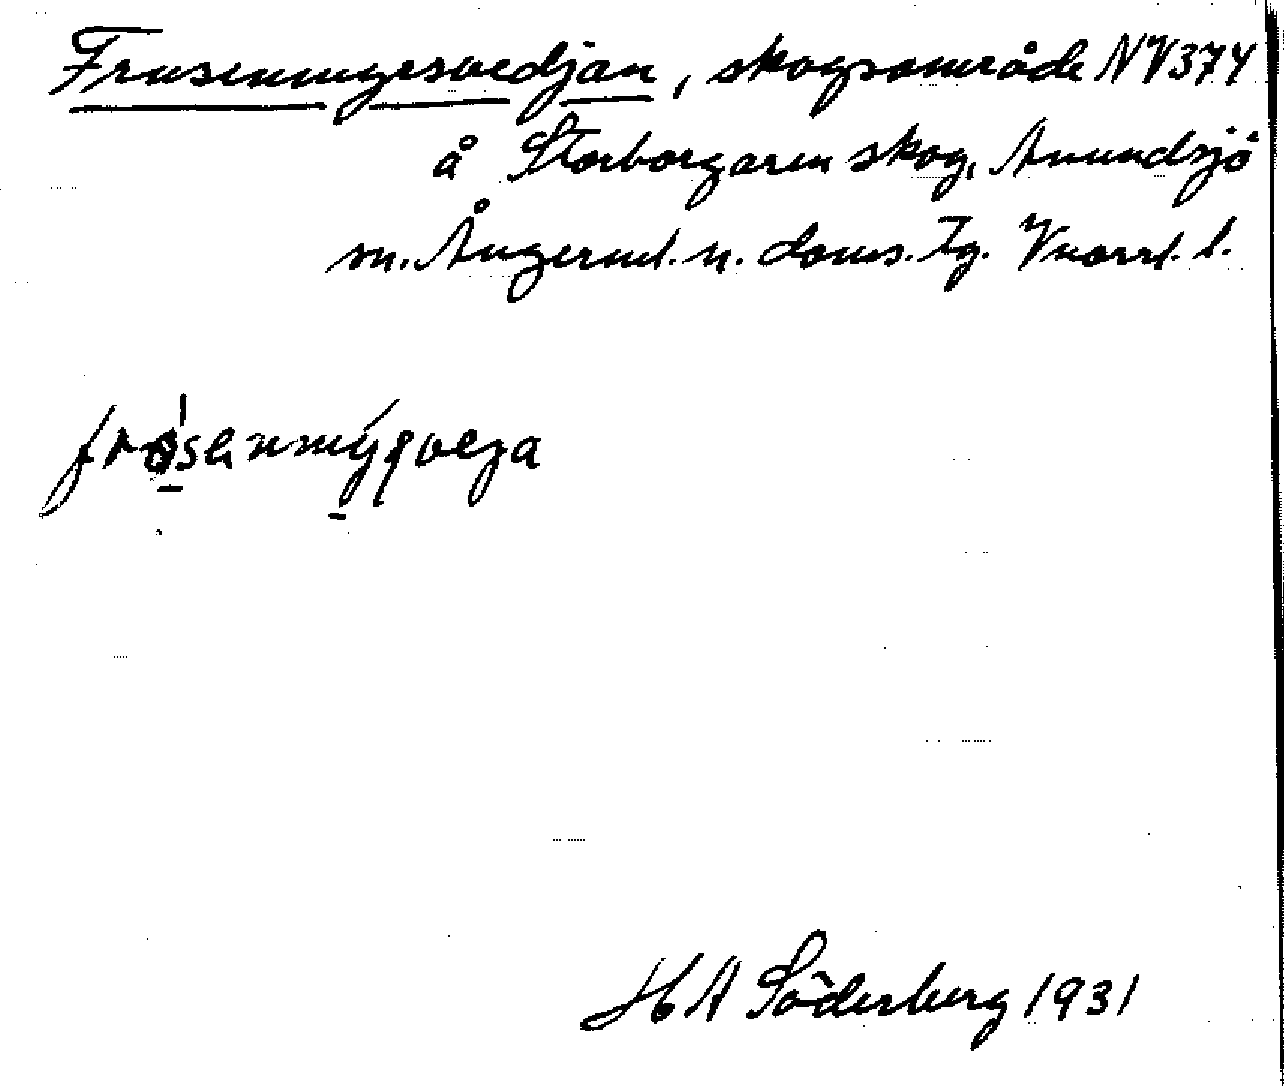 Frusenmyrsvedjan, skogsområde NV374
å Storborgaren skog, Anundsjö
sn. Ångerml. n. doms. Tg. Vnorrl. l.
frosenmyrsveja
H A Söderberg 1931